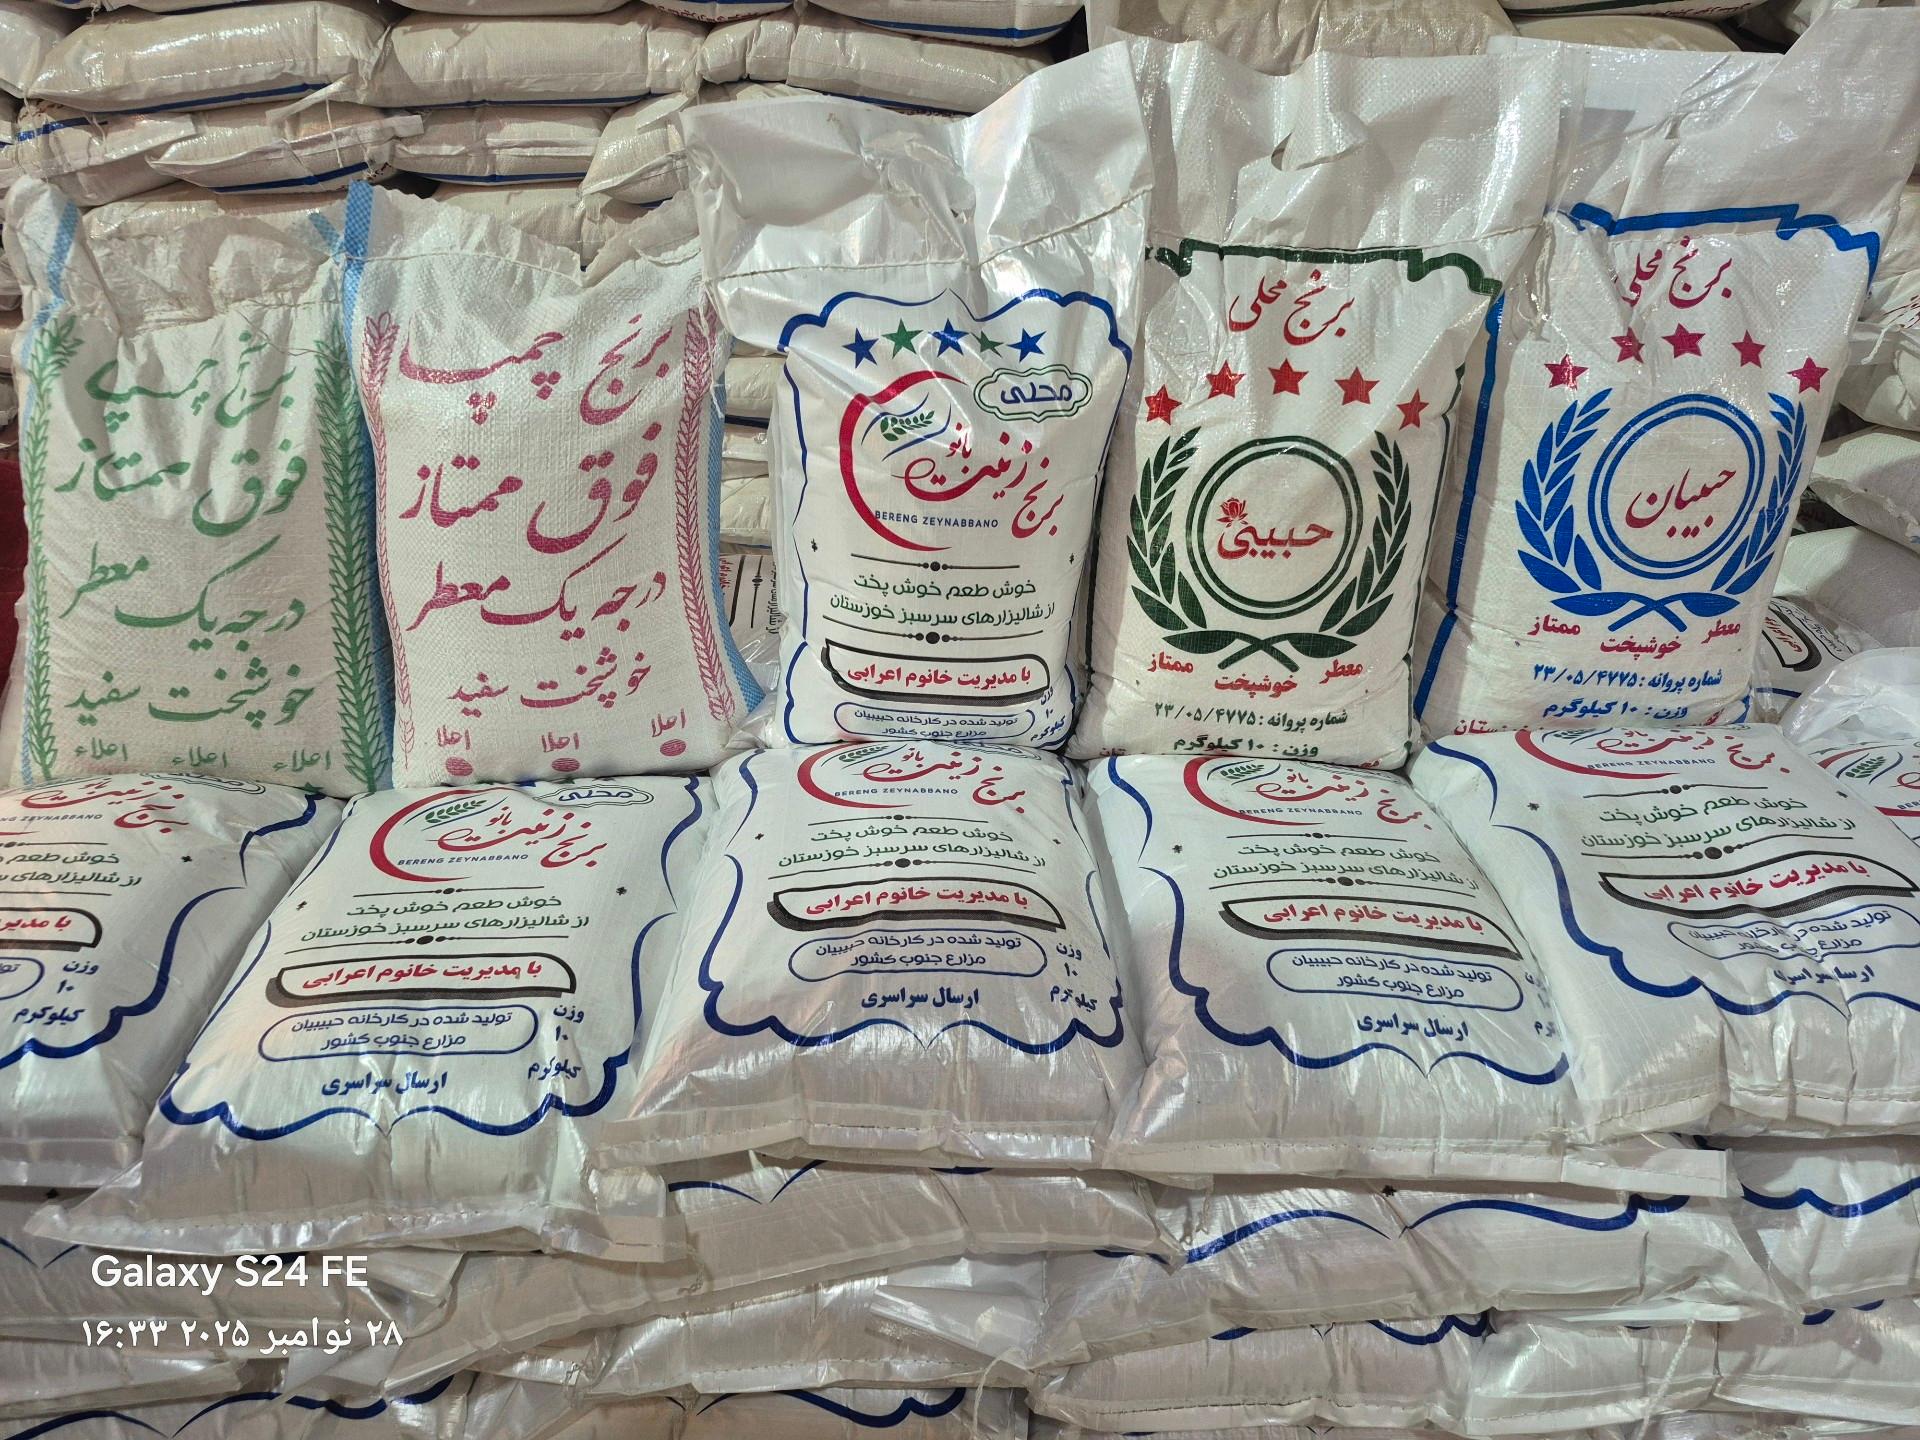 برنج چمپا
فوق ممتاز
درجه یک معطر
خوشپخت سفید
اعلاء اعلاء اعلاء
برنج چمپا
فوق ممتاز
درجه یک معطر
خوشپخت سفید
اعلا اعلا اعلا
محلی
برنج زینت بانو
BERENG ZEYNABBANO
خوش طعم خوش پخت
از شالیزارهای سرسبز خوزستان
با مدیریت خانوم اعرابی
وزن
۱۰
کیلوگرم
تولید شده در کارخانه حبیبیان
مزارع جنوب کشور
برنج محلی
حبیبی
معطر خوشپخت ممتاز
شماره پروانه : ۲۳/۰۵/۴۷۷۵
وزن : ۱۰ کیلوگرم
برنج محلی
حبیبیان
معطر خوشپخت ممتاز
شماره پروانه : ۲۳/۰۵/۴۷۷۵
وزن : ۱۰ کیلوگرم
زینت بانو
برنج
ZEYNABBANO
خوش طعم خوش پخت
از شالیزارهای
با مدیر
وزن
۱۰
کیلوگرم
محلی
برنج زینت بانو
BERENG ZEYNABBANO
خوش طعم خوش پخت
از شالیزارهای سرسبز خوزستان
با مدیریت خانوم اعرابی
تولید شده در کارخانه حبیبیان
مزارع جنوب کشور
وزن
۱۰
کیلوگرم
ارسال سراسری
برنج زینت بانو
BERENG ZEYNABBANO
خوش طعم خوش پخت
از شالیزارهای سرسبز خوزستان
با مدیریت خانوم اعرابی
تولید شده در کارخانه حبیبیان
مزارع جنوب کشور
وزن
۱۰
کیلوگرم
ارسال سراسری
برنج زینت بانو
BERENG ZEYNABBANO
خوش طعم خوش پخت
از شالیزارهای سرسبز خوزستان
با مدیریت خانوم اعرابی
تولید شده در کارخانه حبیبیان
مزارع جنوب کشور
ارسال سراسری
برنج زینت بانو
BERENG ZEYNABBANO
خوش طعم خوش پخت
از شالیزارهای سرسبز خوزستان
با مدیریت خانوم اعرابی
تولید شده در کارخانه حبیبیان
مزارع جنوب کشور
ارسال سراسری
Galaxy S24 FE
۲۸ نوامبر ۲۰۲۵ ۱۶:۳۳